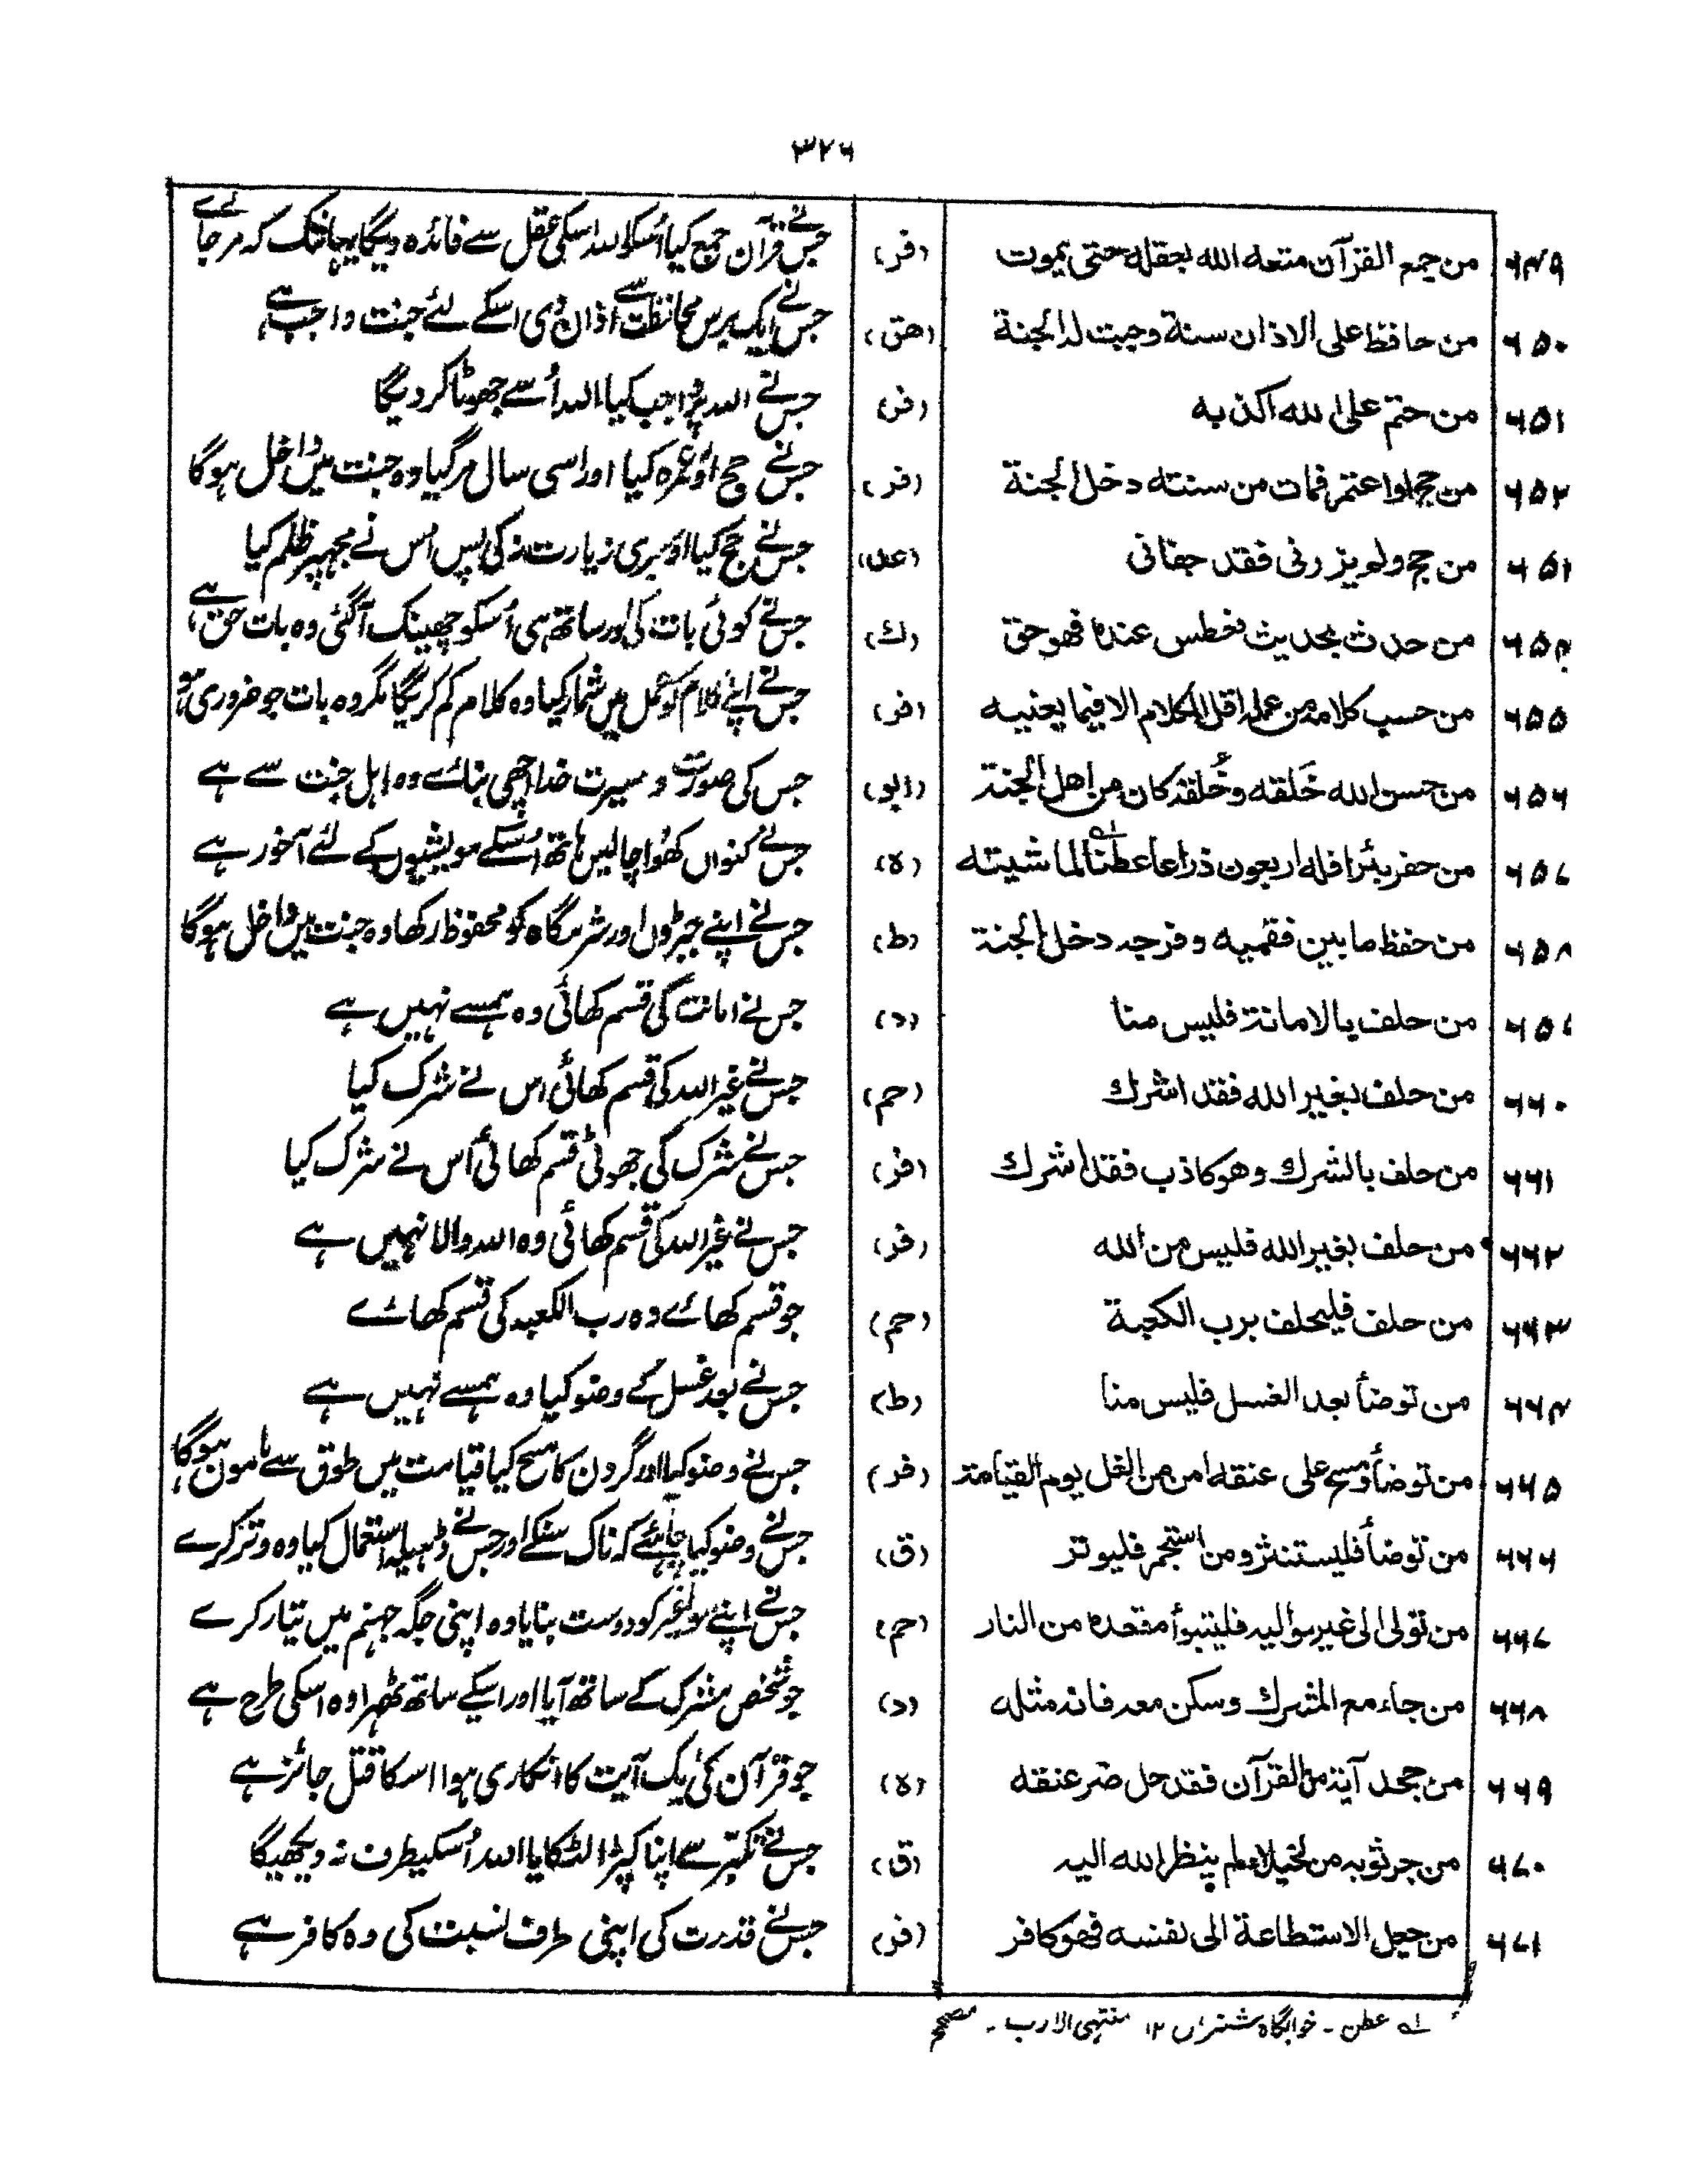 ۳۲۶
۶۴۹ من جمع القرآن متعه الله بعقله حتی یموت (فر) جس نے قرآن جمع کیا اُسکو اللہ اسکی عقل سے فائدہ دیگا یہانتک کہ مر جائے
۶۵۰ من حافظ علی الاذان سنة وجبت له الجنة (هق) جس نے ایک برس محافظت سے اذان دی اسکے لئے جنت واجب ہے
۶۵۱ من حتم علی الله اکذبه (فر) جس نے اللہ پر واجب کیا اللہ اُسے جھوٹا کر دیگا
۶۵۲ من حج او اعتمر فمات من سنته دخل الجنة (فر) جس نے حج اور عمرہ کیا اور اسی سال مرگیا وہ جنت میں داخل ہوگا
۶۵۳ من حج ولم یزرنی فقد جفانی (عد) جس نے حج کیا اور میری زیارت نہ کی پس اس نے مجھپر ظلم کیا
۶۵۴ من حدث بحدیث فعطس عنده فهو حق (ك) جس نے کوئی بات کی اور ساتھ ہی اُسکو چھینک آگئی وہ بات حق ہے
۶۵۵ من حسب کلامه من عمله اقل الکلام الا فیما یعنیه (فر) جس نے اپنے کلام کو عمل میں شمار کیا وہ کلام کم کریگا مگر وہ بات جو ضروری ہو
۶۵۶ من حسن الله خَلقه وخُلقه کان من اهل الجنة (ابو) جس کی صورت و سیرت خدا اچھی بنائے وہ اہل جنت سے ہے
۶۵۷ من حفر بئرا فله اربعون ذراعا عطنا لماشیته (ه) جس نے کنواں کھودا چالیس ہاتھ اُسکے مویشیوں کے لئے آخور ہے
۶۵۸ من حفظ ما بین فقمیه و فرجه دخل الجنة (ط) جس نے اپنے جبڑوں اور شرمگاہ کو محفوظ رکھا وہ جنت میں داخل ہوگا
۶۵۹ من حلف بالامانة فلیس منا (د) جس نے امانت کی قسم کھائی وہ ہمسے نہیں ہے
۶۶۰ من حلف بغیر الله فقد اشرك (حم) جس نے غیر اللہ کی قسم کھائی اس نے شرک کیا
۶۶۱ من حلف بالشرك وهو کاذب فقد اشرك (فر) جس نے شرک کی جھوٹی قسم کھائی اُس نے شرک کیا
۶۶۲ من حلف بغیر الله فلیس من الله (فر) جس نے غیر اللہ کی قسم کھائی وہ اللہ والا نہیں ہے
۶۶۳ من حلف فلیحلف برب الکعبة (حم) جو قسم کھائے وہ رب الکعبہ کی قسم کھائے
۶۶۴ من توضأ بعد الغسل فلیس منا (ط) جس نے بعد غسل کے وضو کیا وہ ہمسے نہیں ہے
۶۶۵ من توضأ ومسح علی عنقه امن من الغل یوم القیامة (فر) جس نے وضو کیا اور گردن کا مسح کیا قیامت میں طوق سے مامون ہوگا
۶۶۶ من توضأ فلیستنثر ومن استجمر فلیوتر (ق) جس نے وضو کیا چاہئے کہ ناک سنکے اور جس نے ڈھیلہ استعمال کیا وہ وتر کرے
۶۶۷ من تولی الی غیر موالیه فلیتبوأ مقعده من النار (حم) جس نے اپنے مولیٰ غیر کو دوست بنایا وہ اپنی جگہ جہنم میں تیار کرے
۶۶۸ من جاء مع المشرك وسکن معه فانه مثله (د) جو شخص مشرک کے ساتھ آیا اور اسکے ساتھ ٹھہرا وہ اسکی طرح ہے
۶۶۹ من جحد آیة من القرآن فقد حل ضر عنقه (ه) جو قرآن کی یک آیت کا انکاری ہوا اسکا قتل جائز ہے
۶۷۰ من جر ثوبه من الخیلاء لم ینظر الله الیه (ق) جس نے تکبّر سے اپنا کپڑا لٹکایا اللہ اُسکیطرف نہ دیکھیگا
۶۷۱ من جعل الاستطاعة الی نفسه فهو کافر (فر) جس نے قدرت کی اپنی طرف نسبت کی وہ کافر ہے
لہ عطن۔ خوابگاہ شتراں ۱۲ منتہی الارب۔ مصحح